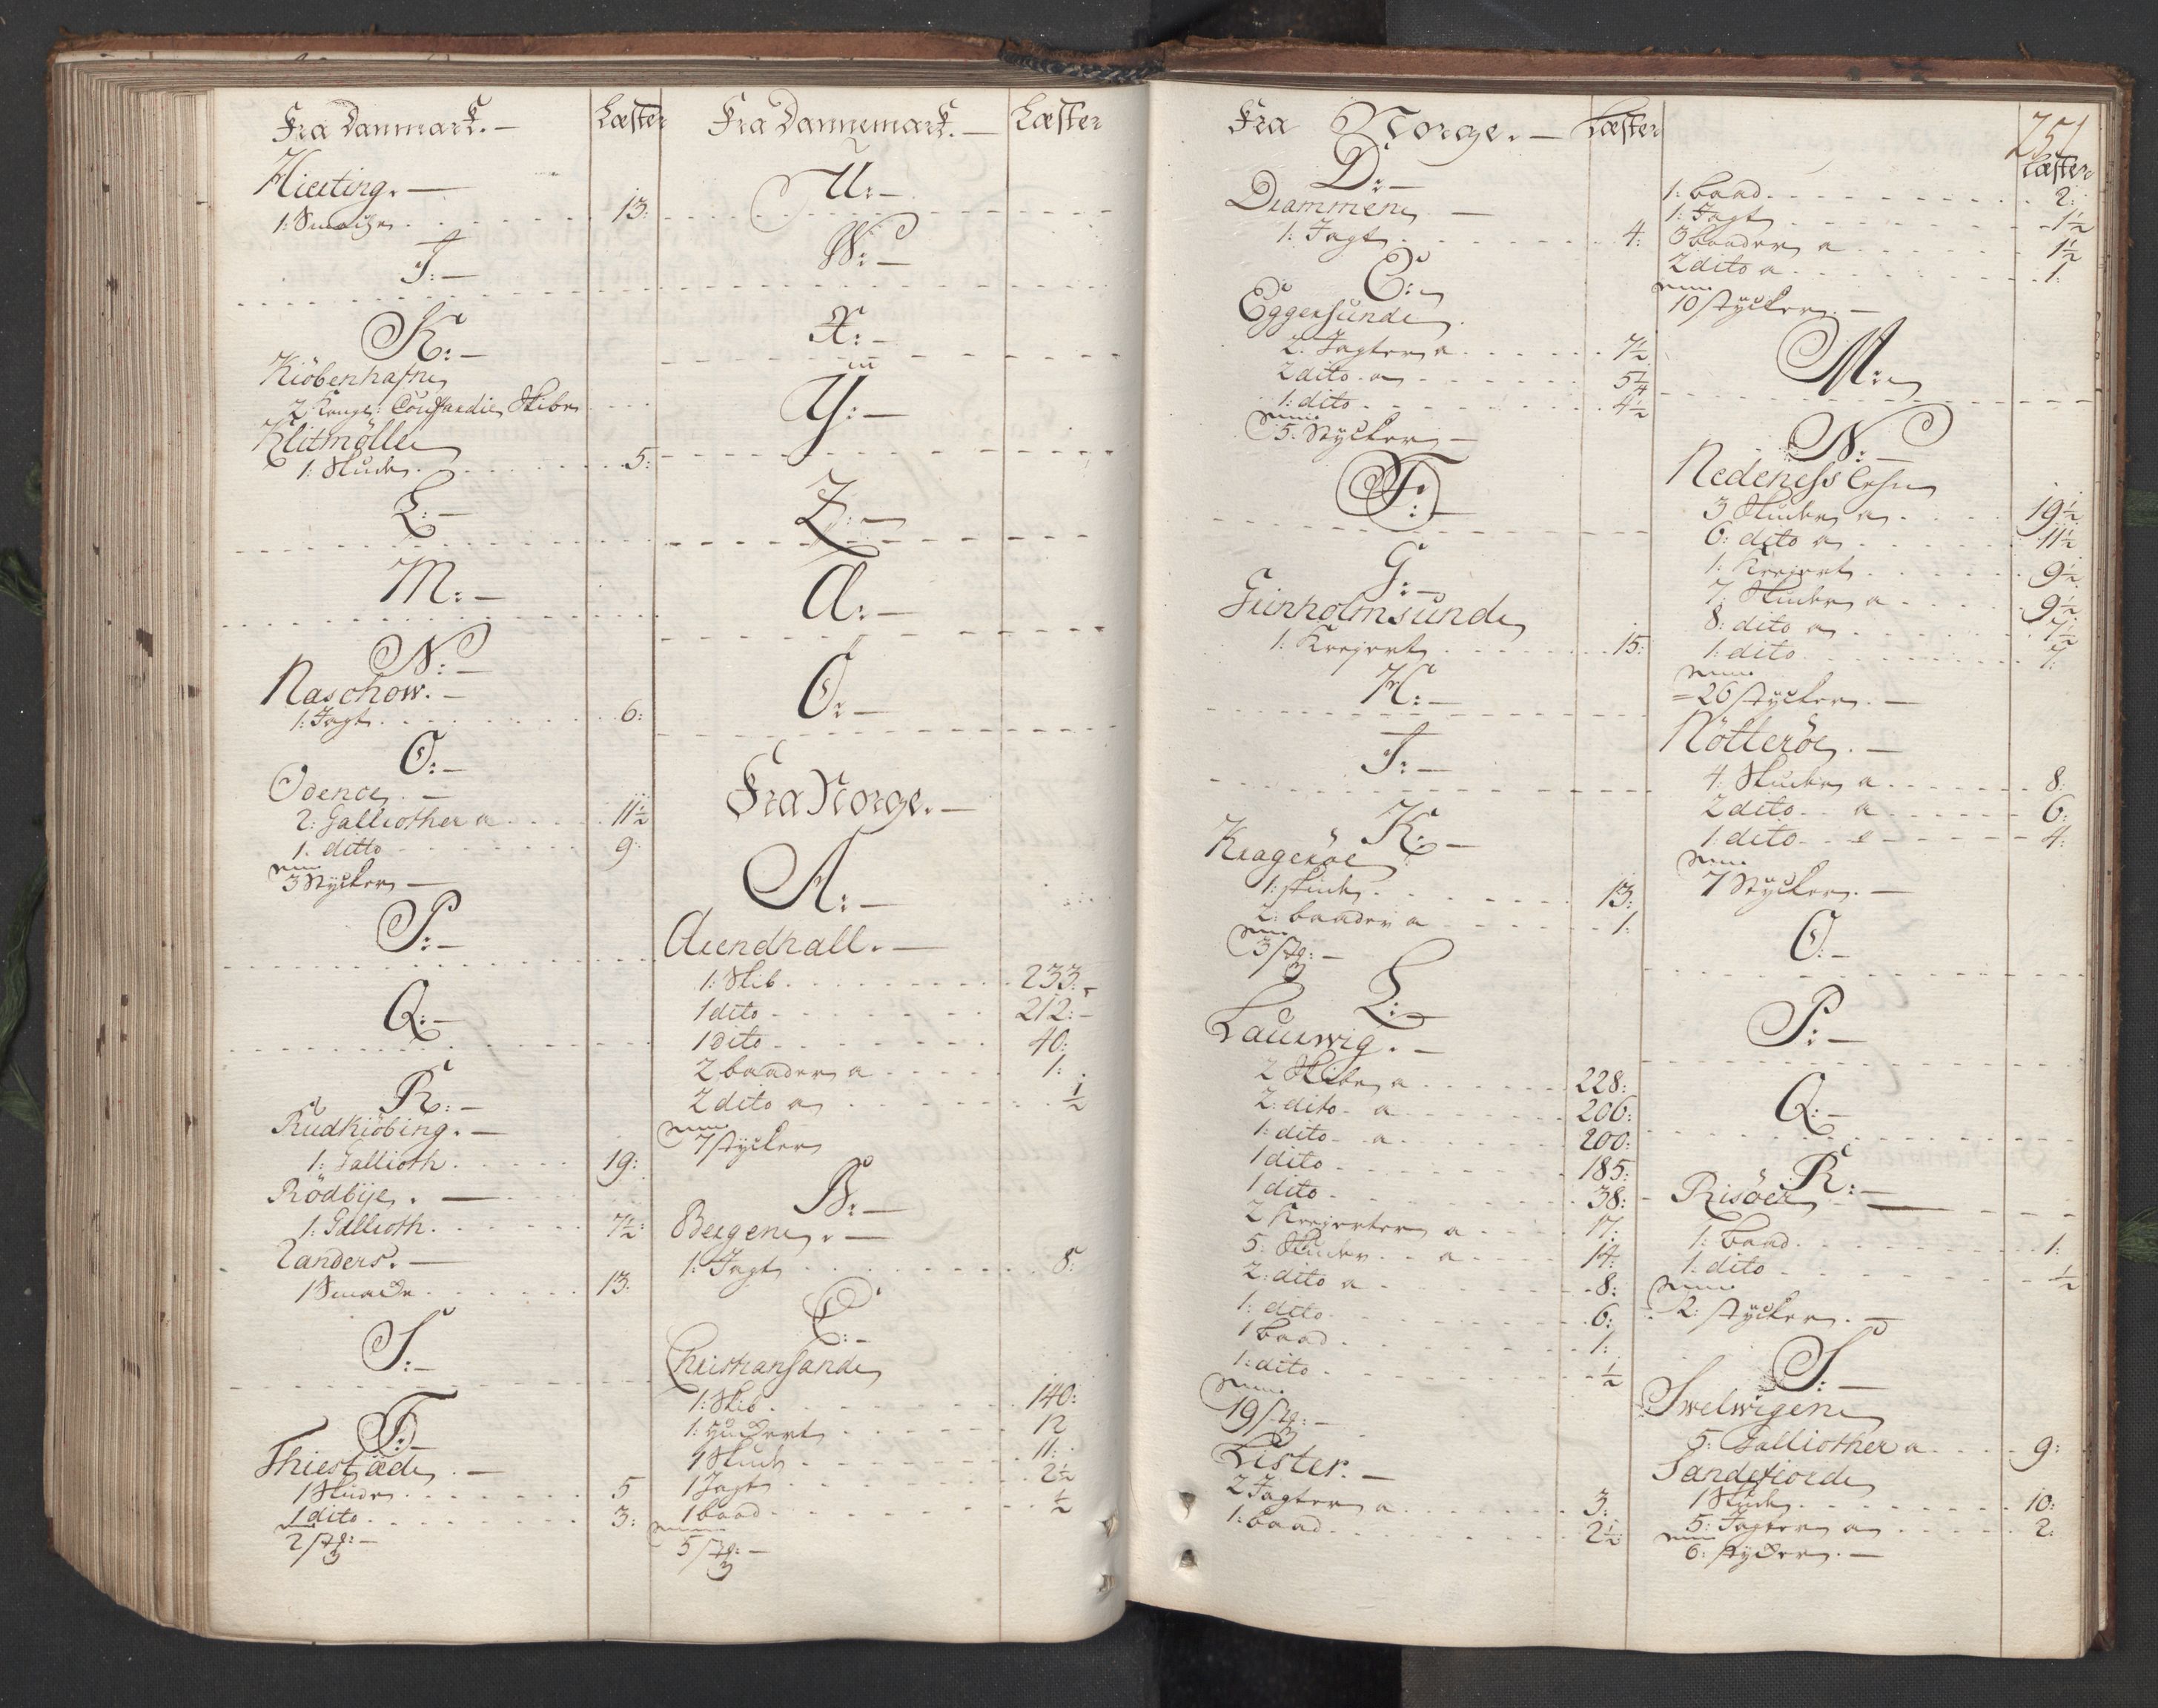 Fra Danmark. — Læster
Hierting. —
1: Smakke 13:
I: —
K: —
Kiöbenhafn
2 Konge: Couffardie Skibe
Klitmølle
1: Skude 5:
L: —
M: —
N: —
Naschow. —
1: Jagt 6:
O: —
Odence —
2: Galliother a 11½
1: ditto 9:
3 Stycker —
P: —
Q: —
R: —
Rudkiöbing. —
1: Gallioth 19:
Rödbÿe. —
1: Gallioth 7½:
Randers. —
1 Smacke 13:
S: —
T: —
Thiestæde. —
1 Skude 5
1 dito 3:
2 st: —
Fra Dannemark. — Læster
U: —
W: —
X: —
Y: —
Z: —
A: —
O: —
Fra Norge. —
A: —
Arendhall. —
1: Skib 233:
1 dito 212: —
1 dito 40:
2 baader a 1:
2 dito a ½
7 stycker
B: —
Bergen. —
1: Jagt 8:
C: —
Christiansand
1: Skib 140:
1: Huckert 12
1 Skude 11:
1 Jagt 2½
1 baad ½
5 st: —
Fra Norge. — Læster
D: —
Drammen —
1: Jagt 4:
E:
Eggersund
2: Jagter a 7½
2 dito a 5¼
1: dito 4½
5: Stycker —
F: —
G: —
Grinholmsund
1: Krejert 15:
H: —
I: —
K: —
Kragerøe
1: skude 13:
2: baader a 1:
3 st: —
L: —
Laurwig. —
2 Skibe a 228:
2: dito a 206:
1: dito a 200:
1 dito 185:
1 dito 38:
2 Krejerter a 17:
5: Skuder a 14:
2: dito a 8:
1: dito 6:
1 baad 1:
1: dito ½
19 st: —
Lister. —
2 Jagter a 3:
1: baad 2½
251
Læster
1: baad 2:
1: Jagt 1½
3 baader a 1½
2 dito a 1:
10 stycker. —
M:
N: —
Nedeness Lehn
3 Skuder a 19½
6: dito a 11½
1: Krejert 9½
7: Skuder a 9½
8: dito a 7½
1: dito 7:
26 stycker. —
Nötteröe. —
4: Skuder a 8:
2 dito a 6:
1: dito 4:
7 Stycker. —
O: —
P: —
Q: —
R: —
Risöer
1: baad 1:
1: dito ½
2: stycker. —
S: —
Swelwigen
5: Galliother a 9:
Sandefiord
1 Skude 10:
5: Jagter a 2:
6: stycker. —